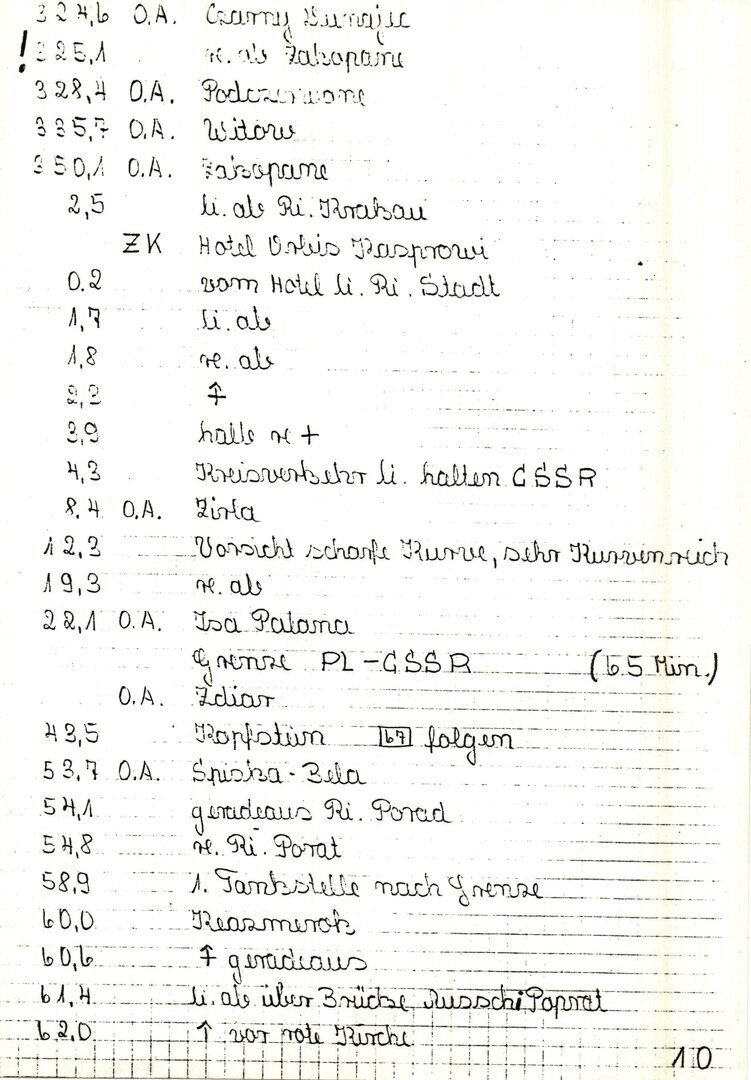 324,6 O.A. Czarny Dunajec
! 325,1 re. ab Zakopane
328,4 O.A. Podczerwone
335,7 O.A. Witow
350,1 O.A. Zakopane
2,5 li. ab Ri. Krakau
ZK Hotel Orbis Kasprowi
0.2 vom Hotel li. Ri. Stadt
1,7 li. ab
1,8 re. ab
2,2 ↑
3,9 halb re +
4,3 Kreisverkehr li. halten CSSR
8.4 O.A. Zirla
12,3 Vorsicht scharfe Kurve, sehr Kurvenreich
19,3 re. ab
22,1 O.A. Isa Palana
Grenze PL-CSSR (65 Min.)
O.A. Zdiar
43,5 Kopfstein 67 folgen
53,7 O.A. Spiska-Bela
54,1 geradeaus Ri. Porad
54,8 re. Ri. Porat
58,9 1. Tankstelle nach Grenze
60,0 Keazmerok
60,6 ↑ geradeaus
61,4 li. ab über Brücke Russchi Poprat
62,0 ↑ vor rote Kirche
10